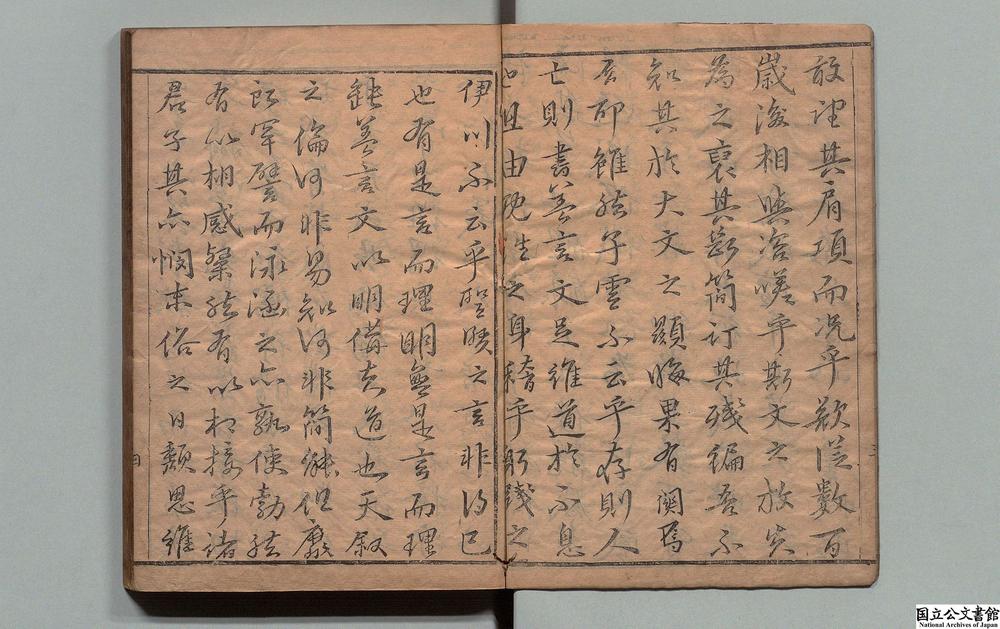 敢望其肩項而况乎欲從數百
歲後相與咨嗟乎斯文之放失
為之裒其斷簡訂其殘編吾不
知其於大文之顯晦果有関焉
否耶雖然子雲不云乎存則人
亡則書善言文足維道於不息
也且由既生之身稽乎躬踐之
伊川不云乎聖賢之言非得已
也有是言而理明無是言而理
缺善言文以明備夫道也天叙
之倫何非易知何非簡能但
罕譬而泳涵之亦孰使勃然
有以相感粲然有以相接乎諸
君子其亦憫末俗之日頽思維
四
国立公文書館
National Archives of Japan